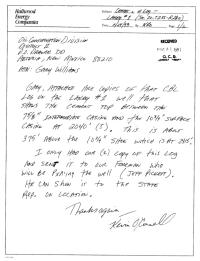 Hallwood
Energy
Companies
Subject: Cement + Log -
Lackey #1 (Sec 20-T23S-R28E)
Date: 10/24/91 By: KEO Page 1/2
Oil Conservation Division
RECEIVED
O. C. D.
P.O. Drawer DD
Artesia, New Mexico 88210
Attn: Gary Williams
Gary, Attached are copies of that CBL
Log on the Lackey #1 well that
shows the cement top between the
7 5/8" Intermediate casing and the 10 3/4" surface
casing at 2040' (±). This is about
375' above the 10 3/4" shoe which is at 2415'.
I only had one (1) copy of this log
and sent it to our foreman who
will be P&Aing the well (Jeff Pickett).
He can show it to the State
Rep. on location.
Thanks again
Kevin O'Connell